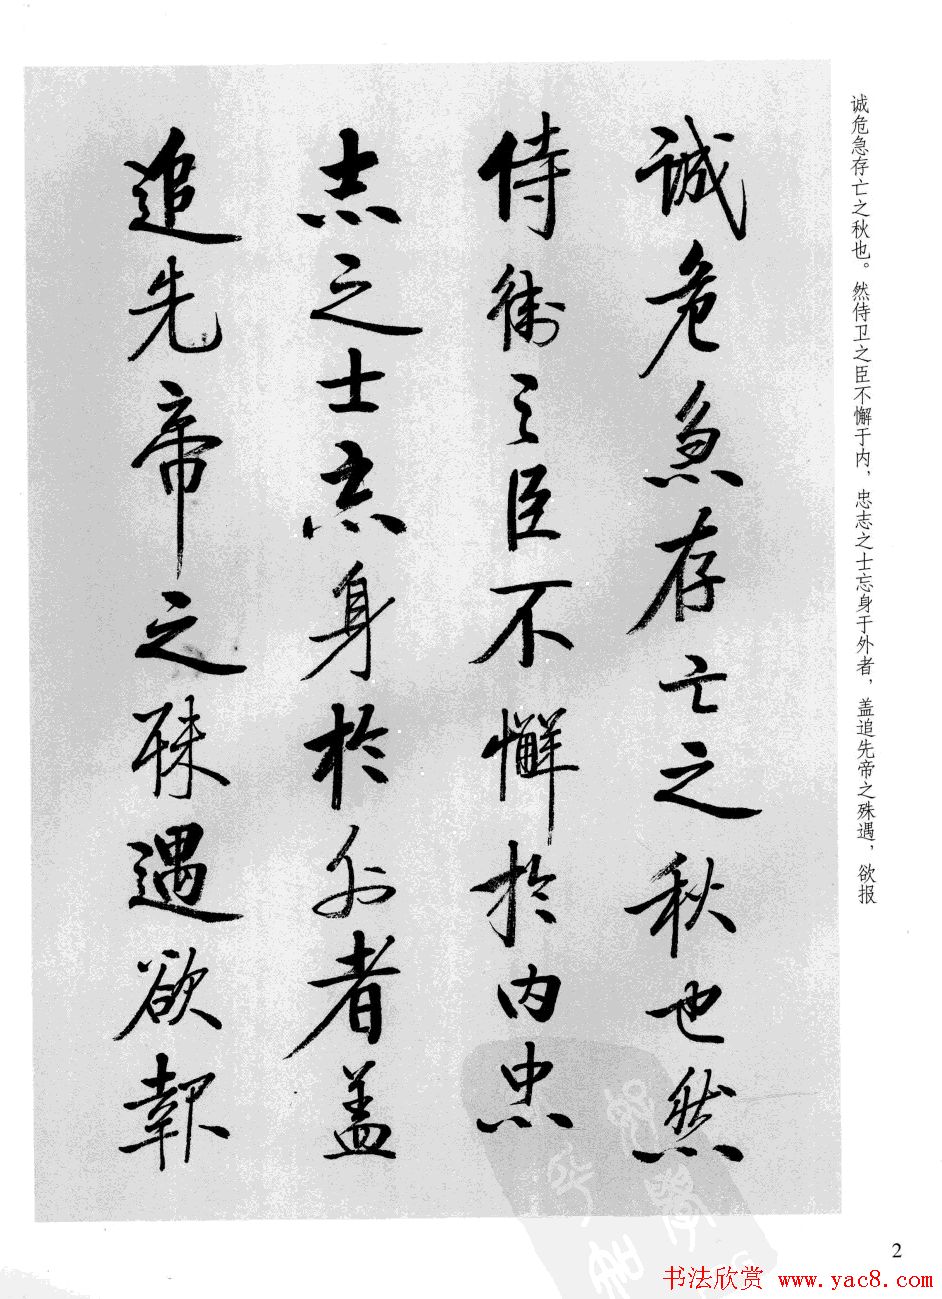 诚危急存亡之秋也。然侍卫之臣不懈于内，忠志之士忘身于外者，盖追先帝之殊遇，欲报
誠危急存亡之秋也然
侍衛之臣不懈於内忠
志之士忘身於外者盖
追先帝之殊遇欲報
2
书法欣赏 www.yac8.com